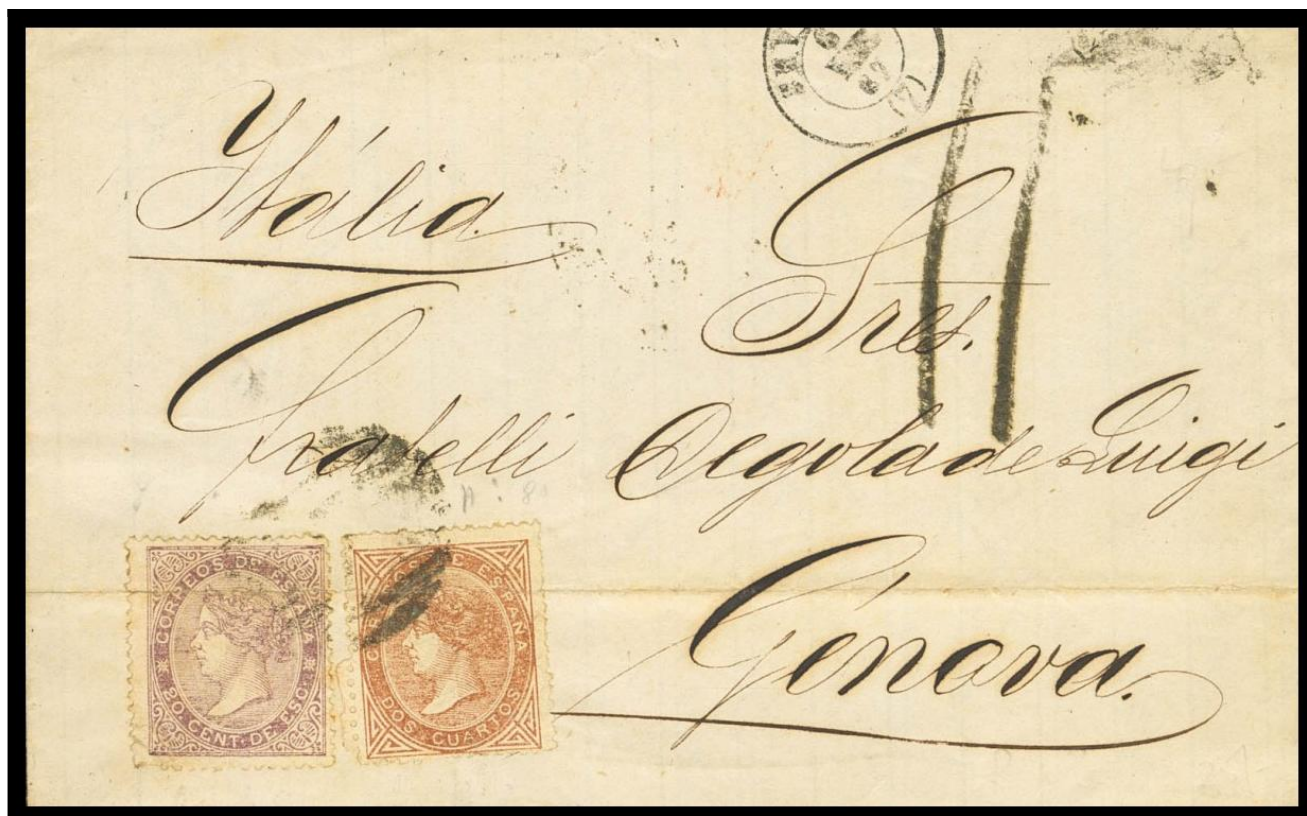 Itália
Sres.
Fratelli Degola de Luigi
Génova.
CORREOS DE ESPAÑA
20 CENT. DE ESC.
CORREOS DE ESPAÑA
DOS CUARTOS